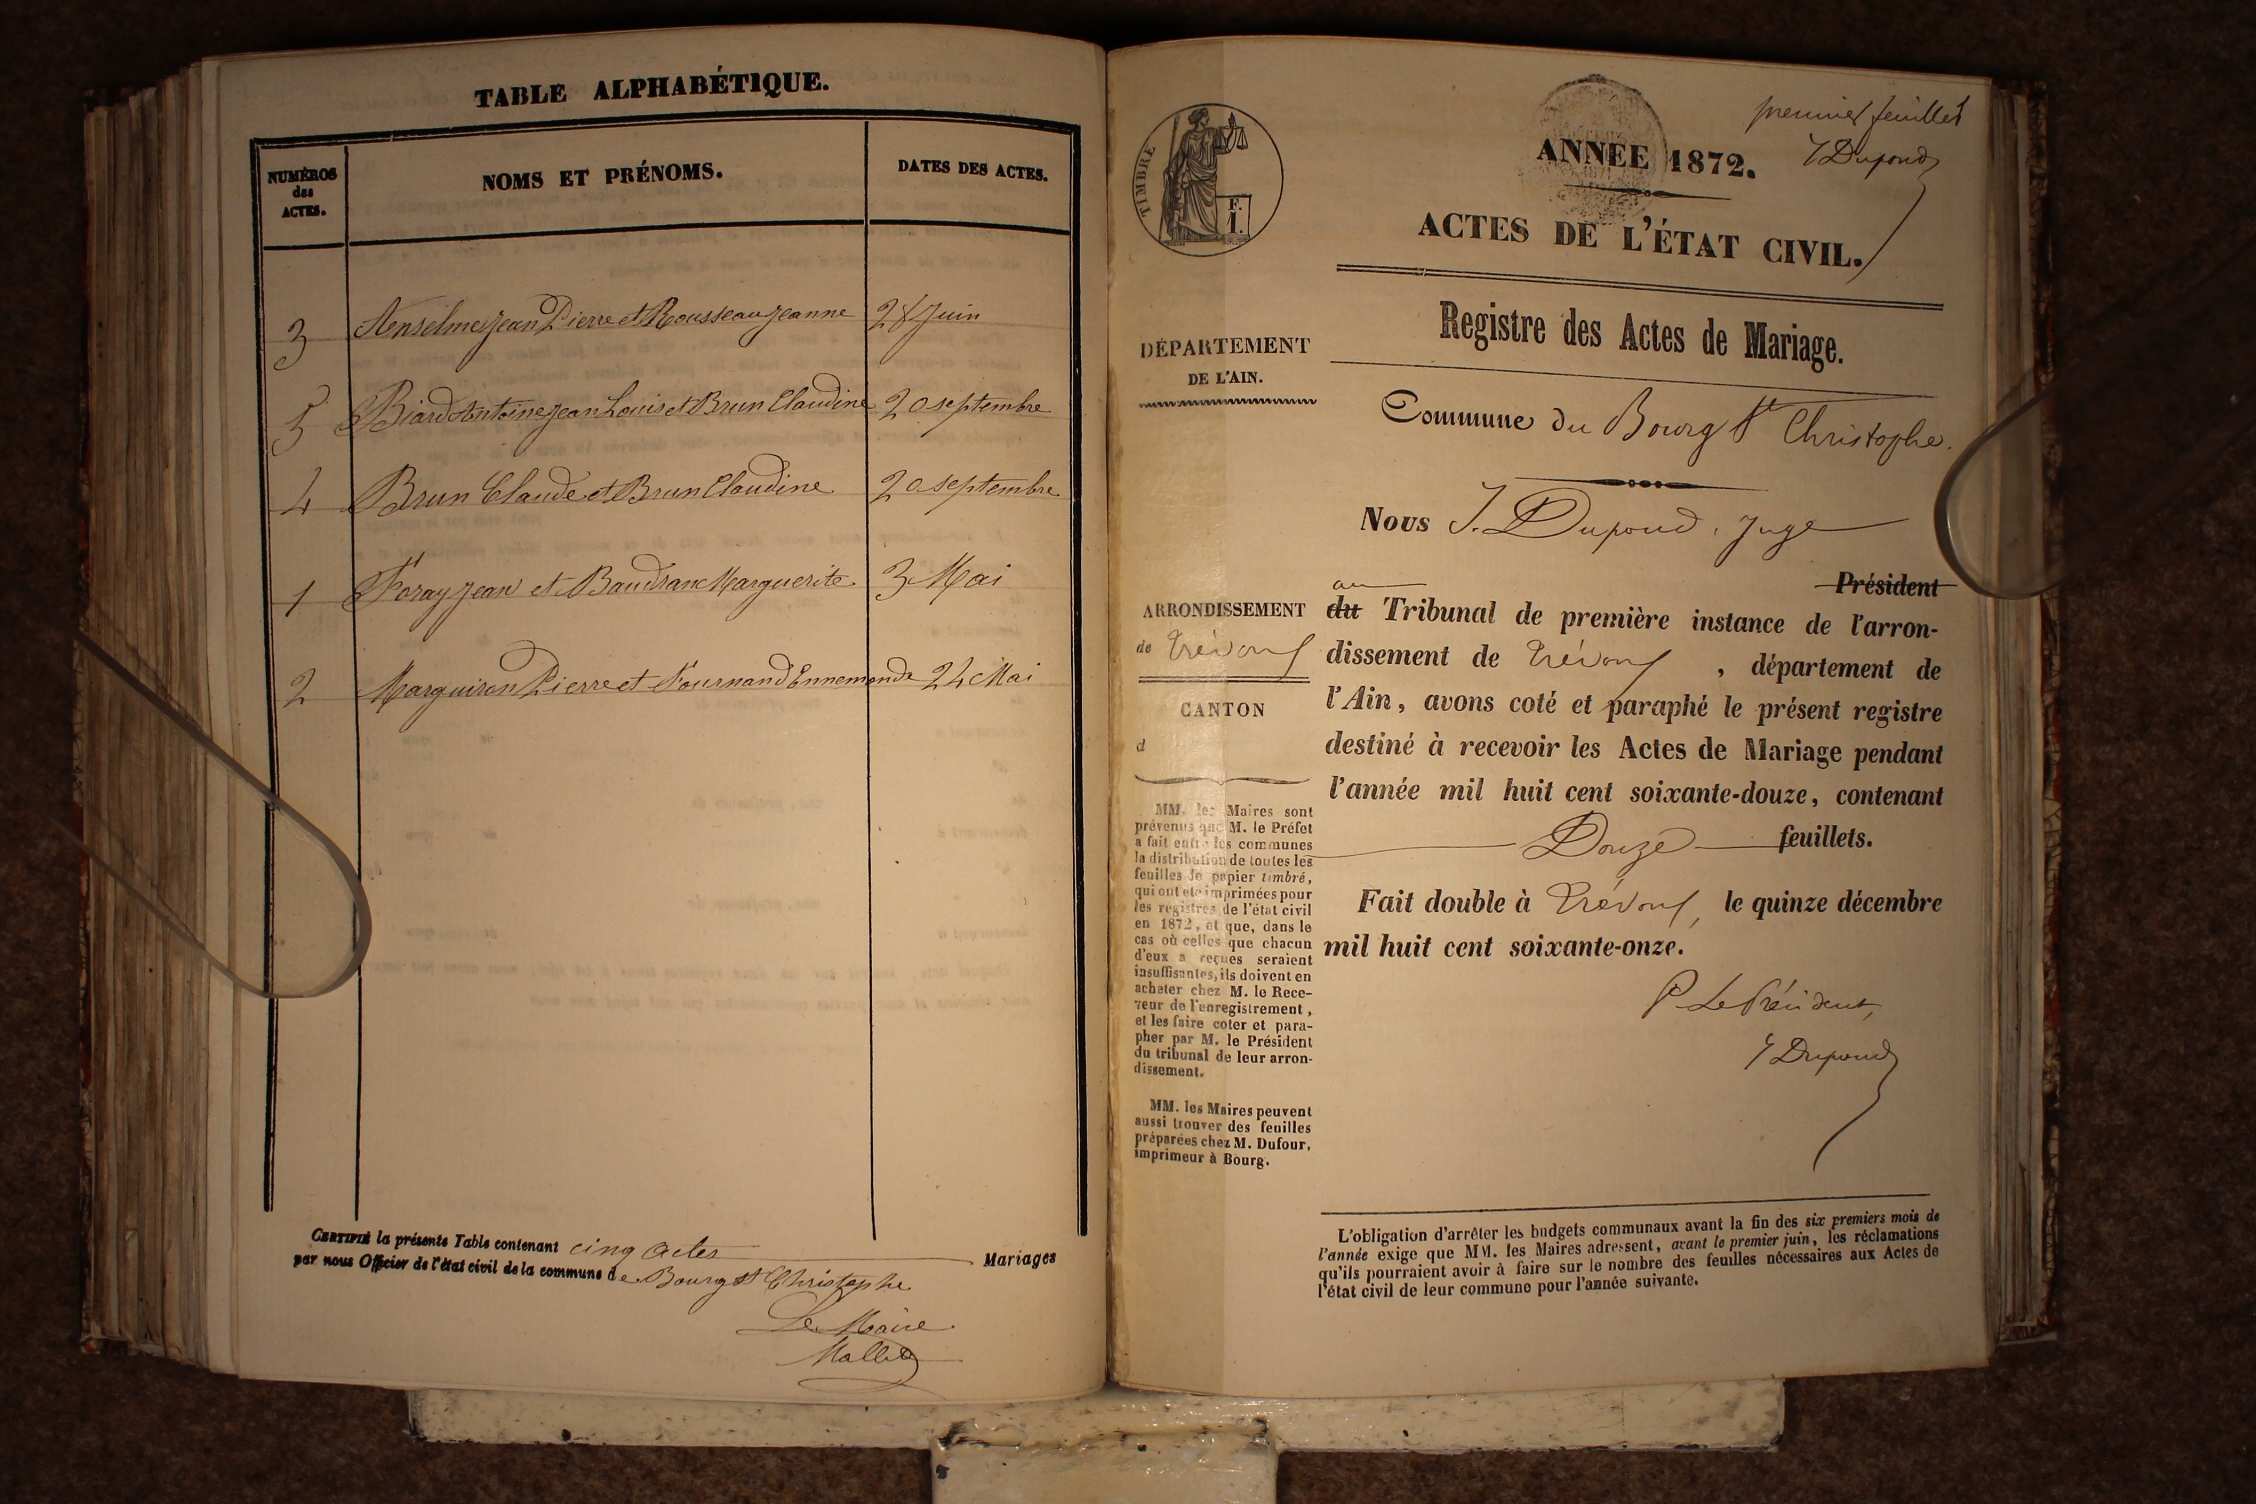 TABLE ALPHABÉTIQUE.
NUMÉROS
des
ACTES.
NOMS ET PRÉNOMS.
DATES DES ACTES.
3 Anselme Jean Pierre et Rousseau Jeanne 28 Juin
5 Biard Antoine Jean Louis et Brun Claudine 20 septembre
4 Brun Claude et Brun Claudine 20 septembre
1 Foray Jean et Baudran Marguerite 3 Mai
2 Marguiron Pierre et Fournand Ennemonde 24 Mai
CERTIFIÉ la présente Table contenant cinq actes Mariages
par nous Officier de l'état civil de la commune de Bourg St Christophe
Le Maire
premier feuillet
J Dupond
TIMBRE
F.
1.
ANNÉE 1872.
ACTES DE L'ÉTAT CIVIL.
Registre des Actes de Mariage.
DÉPARTEMENT
DE L'AIN.
Commune du Bourg St Christophe.
Nous J. Dupond, Juge
Président
au
du Tribunal de première instance de l'arron-
dissement de Trévoux, département de
l'Ain, avons coté et paraphé le présent registre
destiné à recevoir les Actes de Mariage pendant
l'année mil huit cent soixante-douze, contenant
Douze feuillets.
Fait double à Trévoux, le quinze décembre
mil huit cent soixante-onze.
P. Le Président,
J Dupond
ARRONDISSEMENT
de Trévoux
CANTON
d
MM. les Maires sont
prévenus que M. le Préfet
a fait entre les communes
la distribution de toutes les
feuilles de papier timbré,
qui ont été imprimées pour
les registres de l'état civil
en 1872, et que, dans le
cas où celles que chacun
d'eux a reçues seraient
insuffisantes, ils doivent en
acheter chez M. le Rece-
veur de l'enregistrement,
et les faire coter et para-
pher par M. le Président
du tribunal de leur arron-
dissement.
MM. les Maires peuvent
aussi trouver des feuilles
préparées chez M. Dufour,
imprimeur à Bourg.
L'obligation d'arrêter les budgets communaux avant la fin des six premiers mois de
l'année exige que MM. les Maires adressent, avant le premier juin, les réclamations
qu'ils pourraient avoir à faire sur le nombre des feuilles nécessaires aux Actes de
l'état civil de leur commune pour l'année suivante.